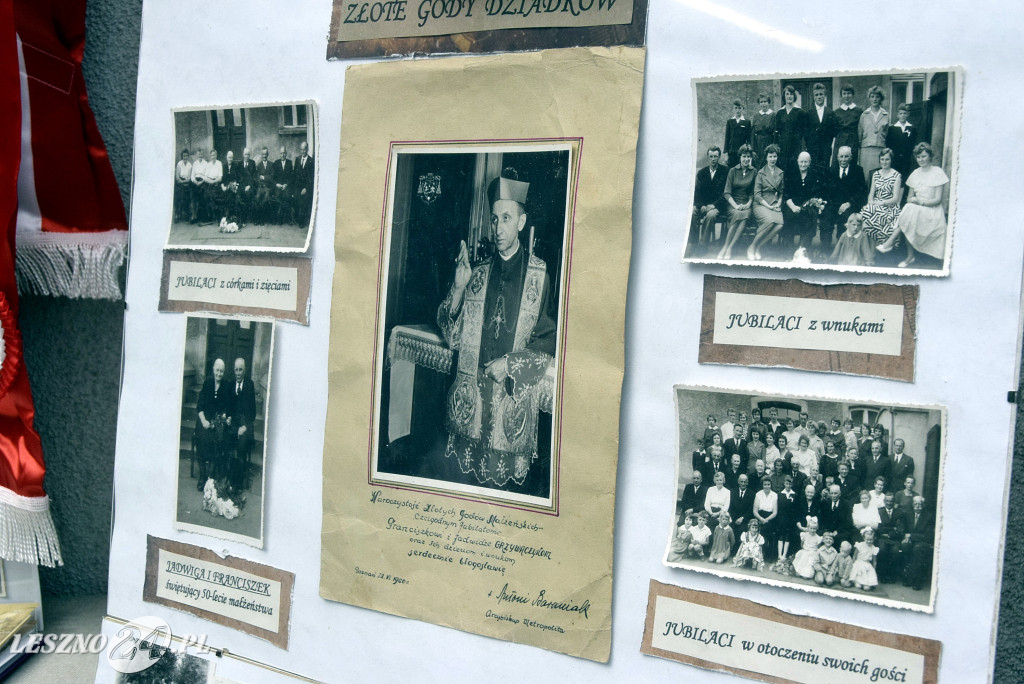 ZŁOTE GODY DZIADKÓW
JUBILACI z córkami i zięciami
JUBILACI z wnukami
Na uroczystość Złotych Godów Małżeńskich
Czcigodnym Jubilatom
Franciszkowi i Jadwidze GRZYWACZEWSKIM
oraz Ich dzieciom i wnukom
serdecznie błogosławię
Poznań
Antoni Baraniak
Arcybiskup Metropolita
JADWIGA I FRANCISZEK
świętujący 50-lecie małżeństwa
JUBILACI w otoczeniu swoich gości
LESZNO24.PL